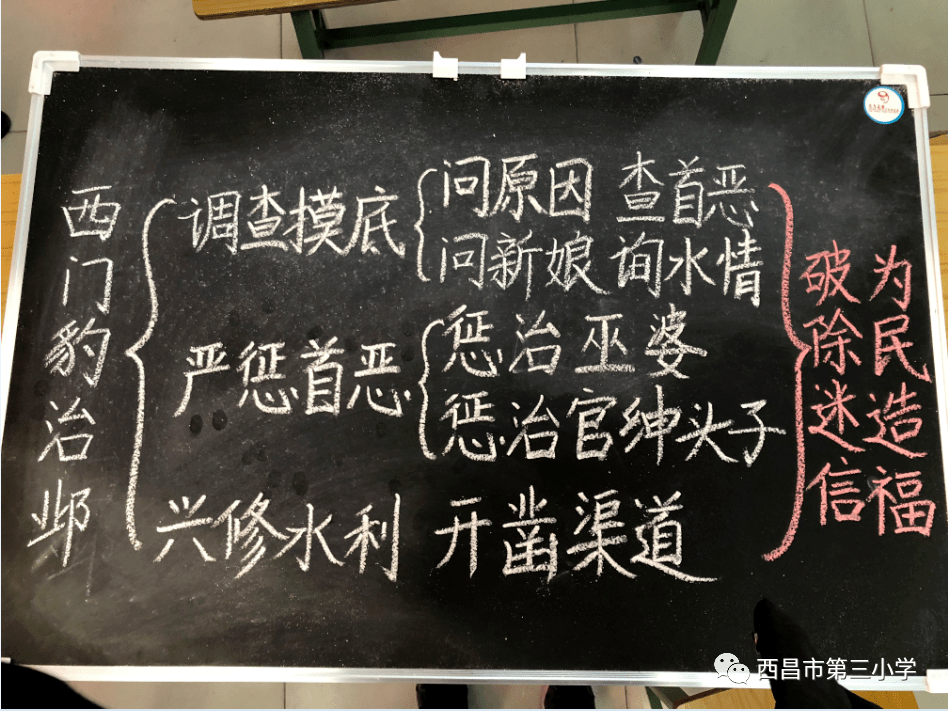 西门豹治邺
调查摸底
问原因 查首恶
问新娘 询水情
严惩首恶
惩治巫婆
惩治官绅头子
兴修水利 开凿渠道
破除迷信
为民造福
西昌市第三小学